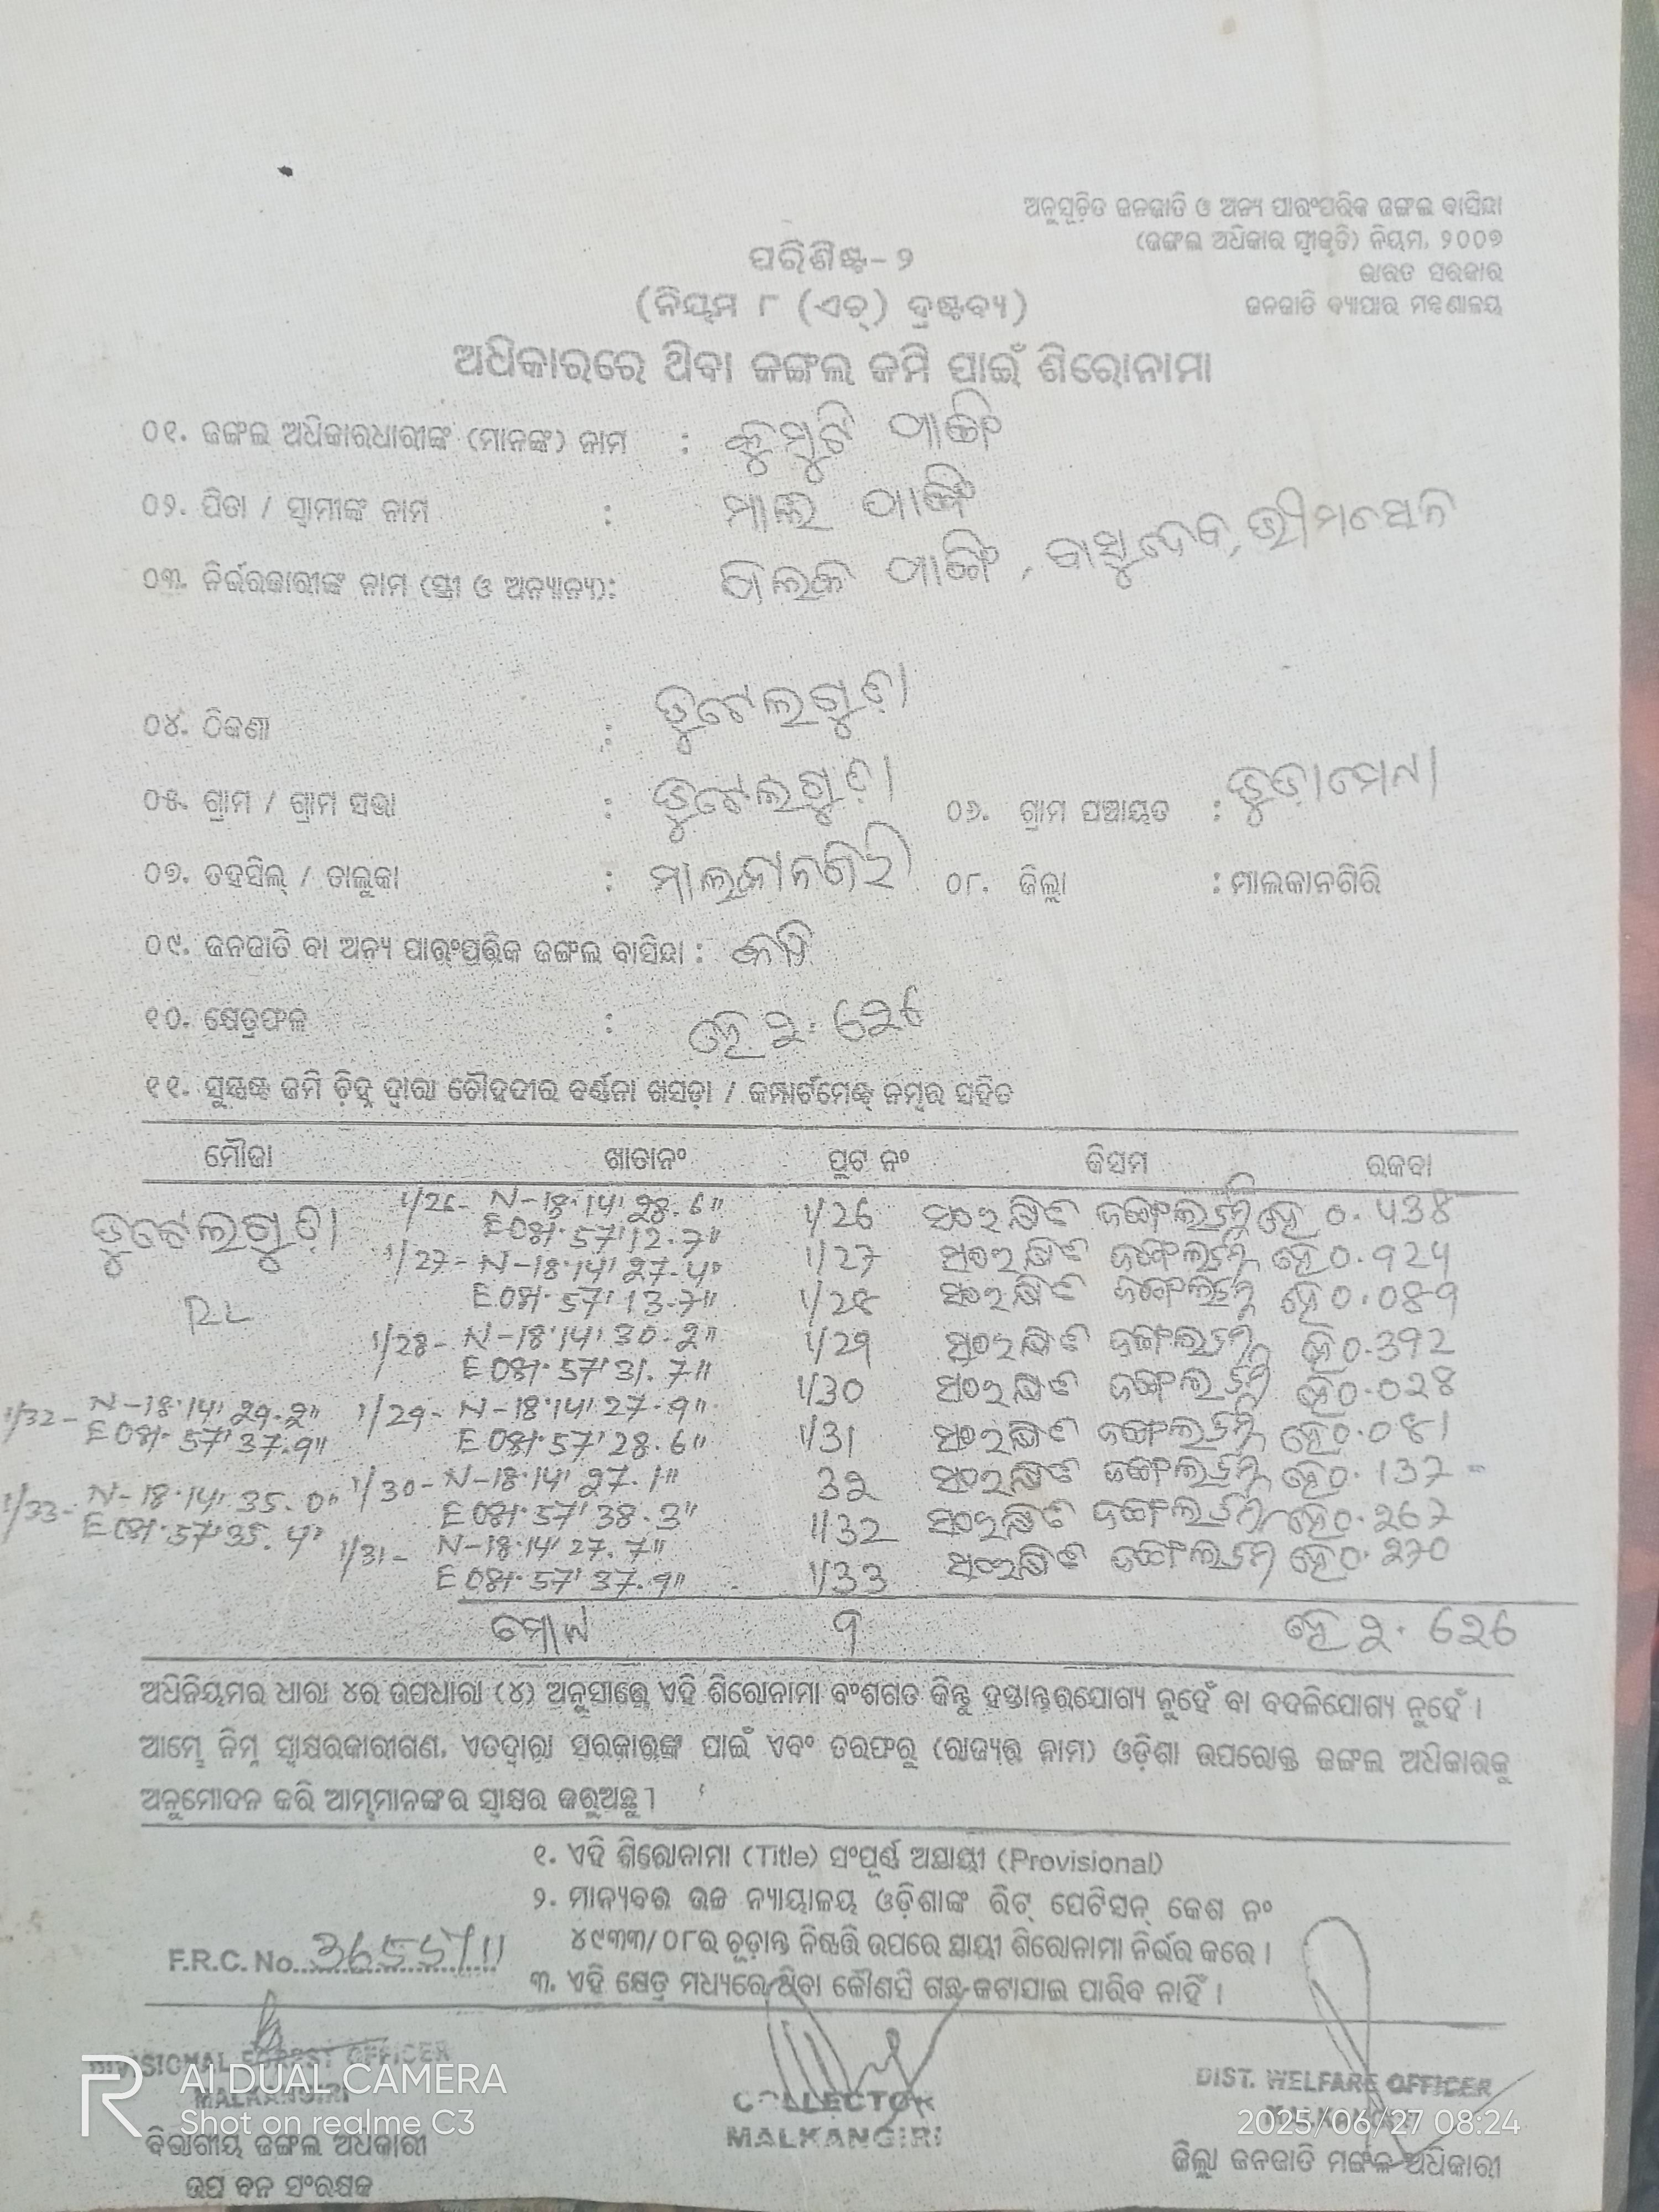 ଅନୁସୂଚିତ ଜନଜାତି ଓ ଅନ୍ୟ ପାରଂପରିକ ଜଙ୍ଗଲ ବାସିନ୍ଦା
(ଜଙ୍ଗଲ ଅଧିକାର ସ୍ୱୀକୃତି) ନିୟମ, ୨୦୦୭
ଭାରତ ସରକାର
ଜନଜାତି ବ୍ୟାପାର ମନ୍ତ୍ରଣାଳୟ
ପରିଶିଷ୍ଟ-୨
(ନିୟମ ୮ (ଏଚ୍) ଦ୍ରଷ୍ଟବ୍ୟ)
ଅଧିକାରରେ ଥିବା ଜଙ୍ଗଲ ଜମି ପାଇଁ ଶିରୋନାମା
୦୧. ଜଙ୍ଗଲ ଅଧିକାରଧାରୀଙ୍କ (ମାନଙ୍କ) ନାମ :
୦୨. ପିତା / ସ୍ୱାମୀଙ୍କ ନାମ :
୦୩. ନିର୍ଭରକାରୀଙ୍କ ନାମ (ସ୍ତ୍ରୀ ଓ ଅନ୍ୟାନ୍ୟ): , ବାସୁଦେବ, ଭୀମସେନ
୦୪. ଠିକଣା : ତୁଟେଲଗୁଡ଼ା
୦୫. ଗ୍ରାମ / ଗ୍ରାମ ସଭା : ତୁଟେଲଗୁଡ଼ା ୦୬. ଗ୍ରାମ ପଞ୍ଚାୟତ :
୦୭. ତହସିଲ୍ / ତାଲୁକା : ମାଲକାନଗିରି ୦୮. ଜିଲ୍ଲା : ମାଲକାନଗିରି
୦୯. ଜନଜାତି ବା ଅନ୍ୟ ପାରଂପରିକ ଜଙ୍ଗଲ ବାସିନ୍ଦା :
୧୦. କ୍ଷେତ୍ରଫଳ : ହେ ୨.626
୧୧. ସୁସ୍ପଷ୍ଟ ଜମି ଚିହ୍ନ ଦ୍ୱାରା ଚୌହଦୀର ବର୍ଣ୍ଣନା ଖସଡ଼ା / କମ୍ପାର୍ଟମେଣ୍ଟ ନମ୍ବର ସହିତ
ମୌଜା ଖାତାନଂ ପ୍ଲଟ ନଂ କିସମ ରକବା
ତୁଟେଲଗୁଡ଼ା 1/26- N-18°14' 28.6" 1/26 ସଂରକ୍ଷିତ ଜଙ୍ଗଲ ଜମି ହେ 0.438
E 081°57'12.7"
1/27- N-18°14' 27.4" 1/27 ସଂରକ୍ଷିତ ଜଙ୍ଗଲ ଜମି ହେ 0.924
E 081°57'13.7" 1/28 ସଂରକ୍ଷିତ ଜଙ୍ଗଲ ଜମି ହେ 0.089
RL
1/28- N-18°14' 30.2" 1/29 ସଂରକ୍ଷିତ ଜଙ୍ଗଲ ଜମି ହେ 0.392
E 081°57'31.7" 1/30 ସଂରକ୍ଷିତ ଜଙ୍ଗଲ ଜମି ହେ 0.028
1/32- N-18°14' 29.2" 1/29- N-18°14' 27.9"
E 081°57'37.9" E 081°57'28.6" 1/31 ସଂରକ୍ଷିତ ଜଙ୍ଗଲ ଜମି ହେ 0.081
1/33- N-18°14' 35.0" 1/30- N-18°14' 27.1" 32 ସଂରକ୍ଷିତ ଜଙ୍ଗଲ ଜମି ହେ 0.137
E 081°57'35.4" E 081°57'38.3" 1/32 ସଂରକ୍ଷିତ ଜଙ୍ଗଲ ଜମି ହେ 0.267
1/31- N-18°14' 27.7"
E 081°57'37.9" 1/33 ସଂରକ୍ଷିତ ଜଙ୍ଗଲ ଜମି ହେ 0.270
ମୋଟ ୨.626
ଅଧିନିୟମର ଧାରା ୪ର ଉପଧାରା (୪) ଅନୁସାରେ ଏହି ଶିରୋନାମା ବଂଶଗତ କିନ୍ତୁ ହସ୍ତାନ୍ତରଯୋଗ୍ୟ ନୁହେଁ ବା ବଦଳିଯୋଗ୍ୟ ନୁହେଁ ।
ଆମ୍ଭେ ନିମ୍ନ ସ୍ୱାକ୍ଷରକାରୀଗଣ, ଏତଦ୍ୱାରା ସରକାରଙ୍କ ପାଇଁ ଏବଂ ତରଫରୁ (ରାଜ୍ୟର ନାମ) ଓଡ଼ିଶା ଉପରୋକ୍ତ ଜଙ୍ଗଲ ଅଧିକାରକୁ
ଅନୁମୋଦନ କରି ଆମ୍ଭମାନଙ୍କର ସ୍ୱାକ୍ଷର କରୁଅଛୁ ।
୧. ଏହି ଶିରୋନାମା (Title) ସଂପୂର୍ଣ୍ଣ ଅସ୍ଥାୟୀ (Provisional)
୨. ମାନ୍ୟବର ଉଚ୍ଚ ନ୍ୟାୟାଳୟ ଓଡ଼ିଶାଙ୍କ ରିଟ୍ ପେଟିସନ୍ କେଶ ନଂ
୪୯୩୩/୦୮ର ଚୂଡ଼ାନ୍ତ ନିଷ୍ପତ୍ତି ଉପରେ ସ୍ଥାୟୀ ଶିରୋନାମା ନିର୍ଭର କରେ ।
F.R.C. No.
୩. ଏହି କ୍ଷେତ୍ର ମଧ୍ୟରେ ଥିବା କୌଣସି ଗଛ କଟାଯାଇ ପାରିବ ନାହିଁ ।
DIVISIONAL FOREST OFFICER
MALKANGIRI
ବିଭାଗୀୟ ଜଙ୍ଗଲ ଅଧିକାରୀ
ଉପ ବନ ସଂରକ୍ଷକ
COLLECTOR
MALKANGIRI
DIST. WELFARE OFFICER
MALKANGIRI
ଜିଲ୍ଲା ଜନଜାତି ମଙ୍ଗଳ ଅଧିକାରୀ
AI DUAL CAMERA
Shot on realme C3
2025/06/27 08:24